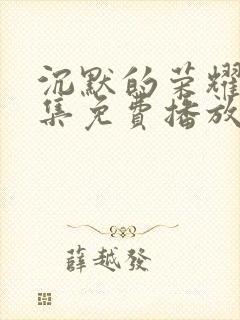 沉默的荣耀
集免費播放
薛越發